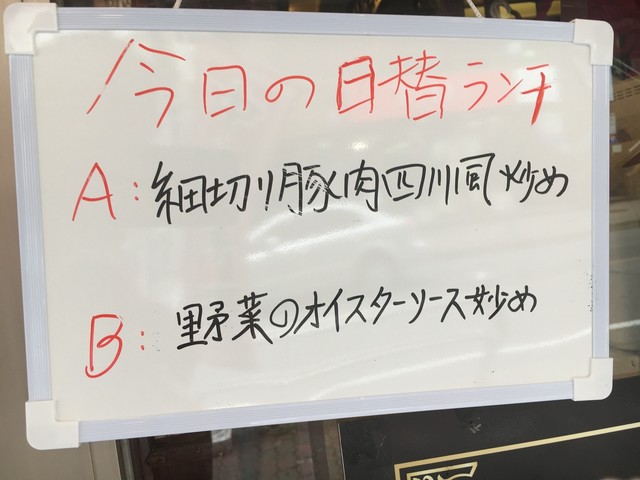 今日の日替ランチ
A:細切り豚肉四川風炒め
B:野菜のオイスターソース炒め